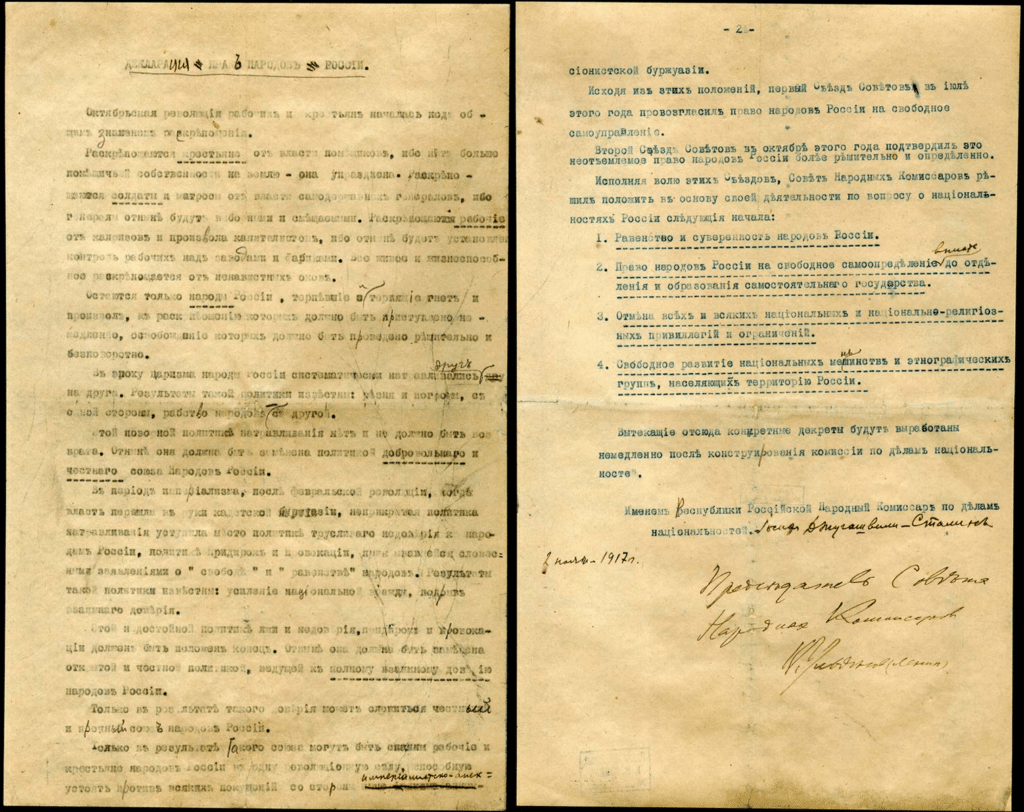 ДЕКЛАРАЦИЯ ПРАВЪ НАРОДОВЪ РОССІИ.
Октябрьская революція рабочихъ и крестьянъ началась подъ об -
щимъ знаменемъ раскрѣпощенія.
Раскрѣпощаются крестьяне отъ власти помѣщиковъ, ибо нѣтъ больше
помѣщичьей собственности на землю - она упразднена. Раскрѣпо -
щаются солдаты и матросы отъ власти самодержавныхъ генераловъ, ибо
генералы отнынѣ будутъ выборными и смѣщаемыми. Раскрѣпощаются рабочіе
отъ капризовъ и произвола капиталистовъ, ибо отнынѣ будетъ установленъ
контроль рабочихъ надъ заводами и фабриками. Все живое и жизнеспособ-
ное раскрѣпощается отъ ненавистныхъ оковъ.
Остаются только народы Россіи , терпѣвшіе и терпящіе гнетъ и
произволъ, къ раскрѣпощенію которыхъ должно быть приступлено не -
медленно, освобожденіе которыхъ должно быть проведено рѣшительно и
безповоротно.
Въ эпоху царизма народы Россіи систематически натравливались другъ
на друга. Результаты такой политики извѣстны: рѣзня и погромы, съ
одной стороны, рабство народовъ съ другой.
Этой позорной политикѣ натравливанія нѣтъ и не должно быть воз
врата. Отнынѣ она должна быть замѣнена политикой добровольнаго и
честнаго союза Народовъ Россіи.
Въ періодъ имперіализма, послѣ февральской революціи, когда
власть перешла въ руки кадетской буржуазіи, неприкрытая политика
натравливанія уступила мѣсто политикѣ трусливаго недовѣрія къ наро-
дамъ Россіи, политикѣ придирокъ и провокаціи, прикрывавшейся словес-
ными заявленіями о " свободѣ " и " равенствѣ" народовъ. Результаты
такой политики извѣстны: усиленіе національной вражды, подрывъ
взаимнаго довѣрія.
Этой недостойной политикѣ лжи и недовѣрія, придирокъ и провока-
ціи долженъ быть положенъ конецъ. Отнынѣ она должна быть замѣнена
открытой и честной политикой, ведущей къ полному взаимному довѣрію
народовъ Россіи.
Только въ результатѣ такого довѣрія можетъ сложиться честный
и прочный союзъ народовъ Россіи.
Только въ результатѣ такого союза могутъ быть спаяны рабочіе и
крестьяне народовъ Россіи въ одну революціонную силу, способную
устоять противъ всякихъ покушеній со стороны имперіалистско-аннек-
- 2 -
сіонистской буржуазіи.
Исходя изъ этихъ положеній, первый съѣздъ Совѣтовъ въ іюлѣ
этого года провозгласилъ право народовъ Россіи на свободное
самоуправленіе.
Второй Съѣздъ Совѣтовъ въ октябрѣ этого года подтвердилъ это
неотъемлемое право народовъ Россіи болѣе рѣшительно и опредѣленно.
Исполняя волю этихъ Съѣздовъ, Совѣтъ Народныхъ Комиссаровъ рѣ-
шилъ положить въ основу своей дѣятельности по вопросу о націонал-
ностяхъ Россіи слѣдующія начала:
1. Равенство и суверенность народовъ Россіи.
2. Право народовъ Россіи на свободное самоопредѣленіе вплоть до отдѣ-
ленія и образованія самостоятельнаго государства.
3. Отмѣна всѣхъ и всякихъ національныхъ и національно-религіоз-
ныхъ привиллегій и ограниченій.
4. Свободное развитіе національныхъ меньшинствъ и этнографическихъ
группъ, населяющихъ территорію Россіи.
Вытекающіе отсюда конкретные декреты будутъ выработаны
немедленно послѣ конструированія комиссіи по дѣламъ націоналъ-
ностей.
Именемъ Республики Россійской Народный Комиссаръ по дѣламъ
національностей. Іосифъ Джугашвили-Сталинъ
2 ноября 1917 г.
Предсѣдатель Совѣта
Народныхъ Комиссаровъ
В. Ульяновъ (Ленинъ)